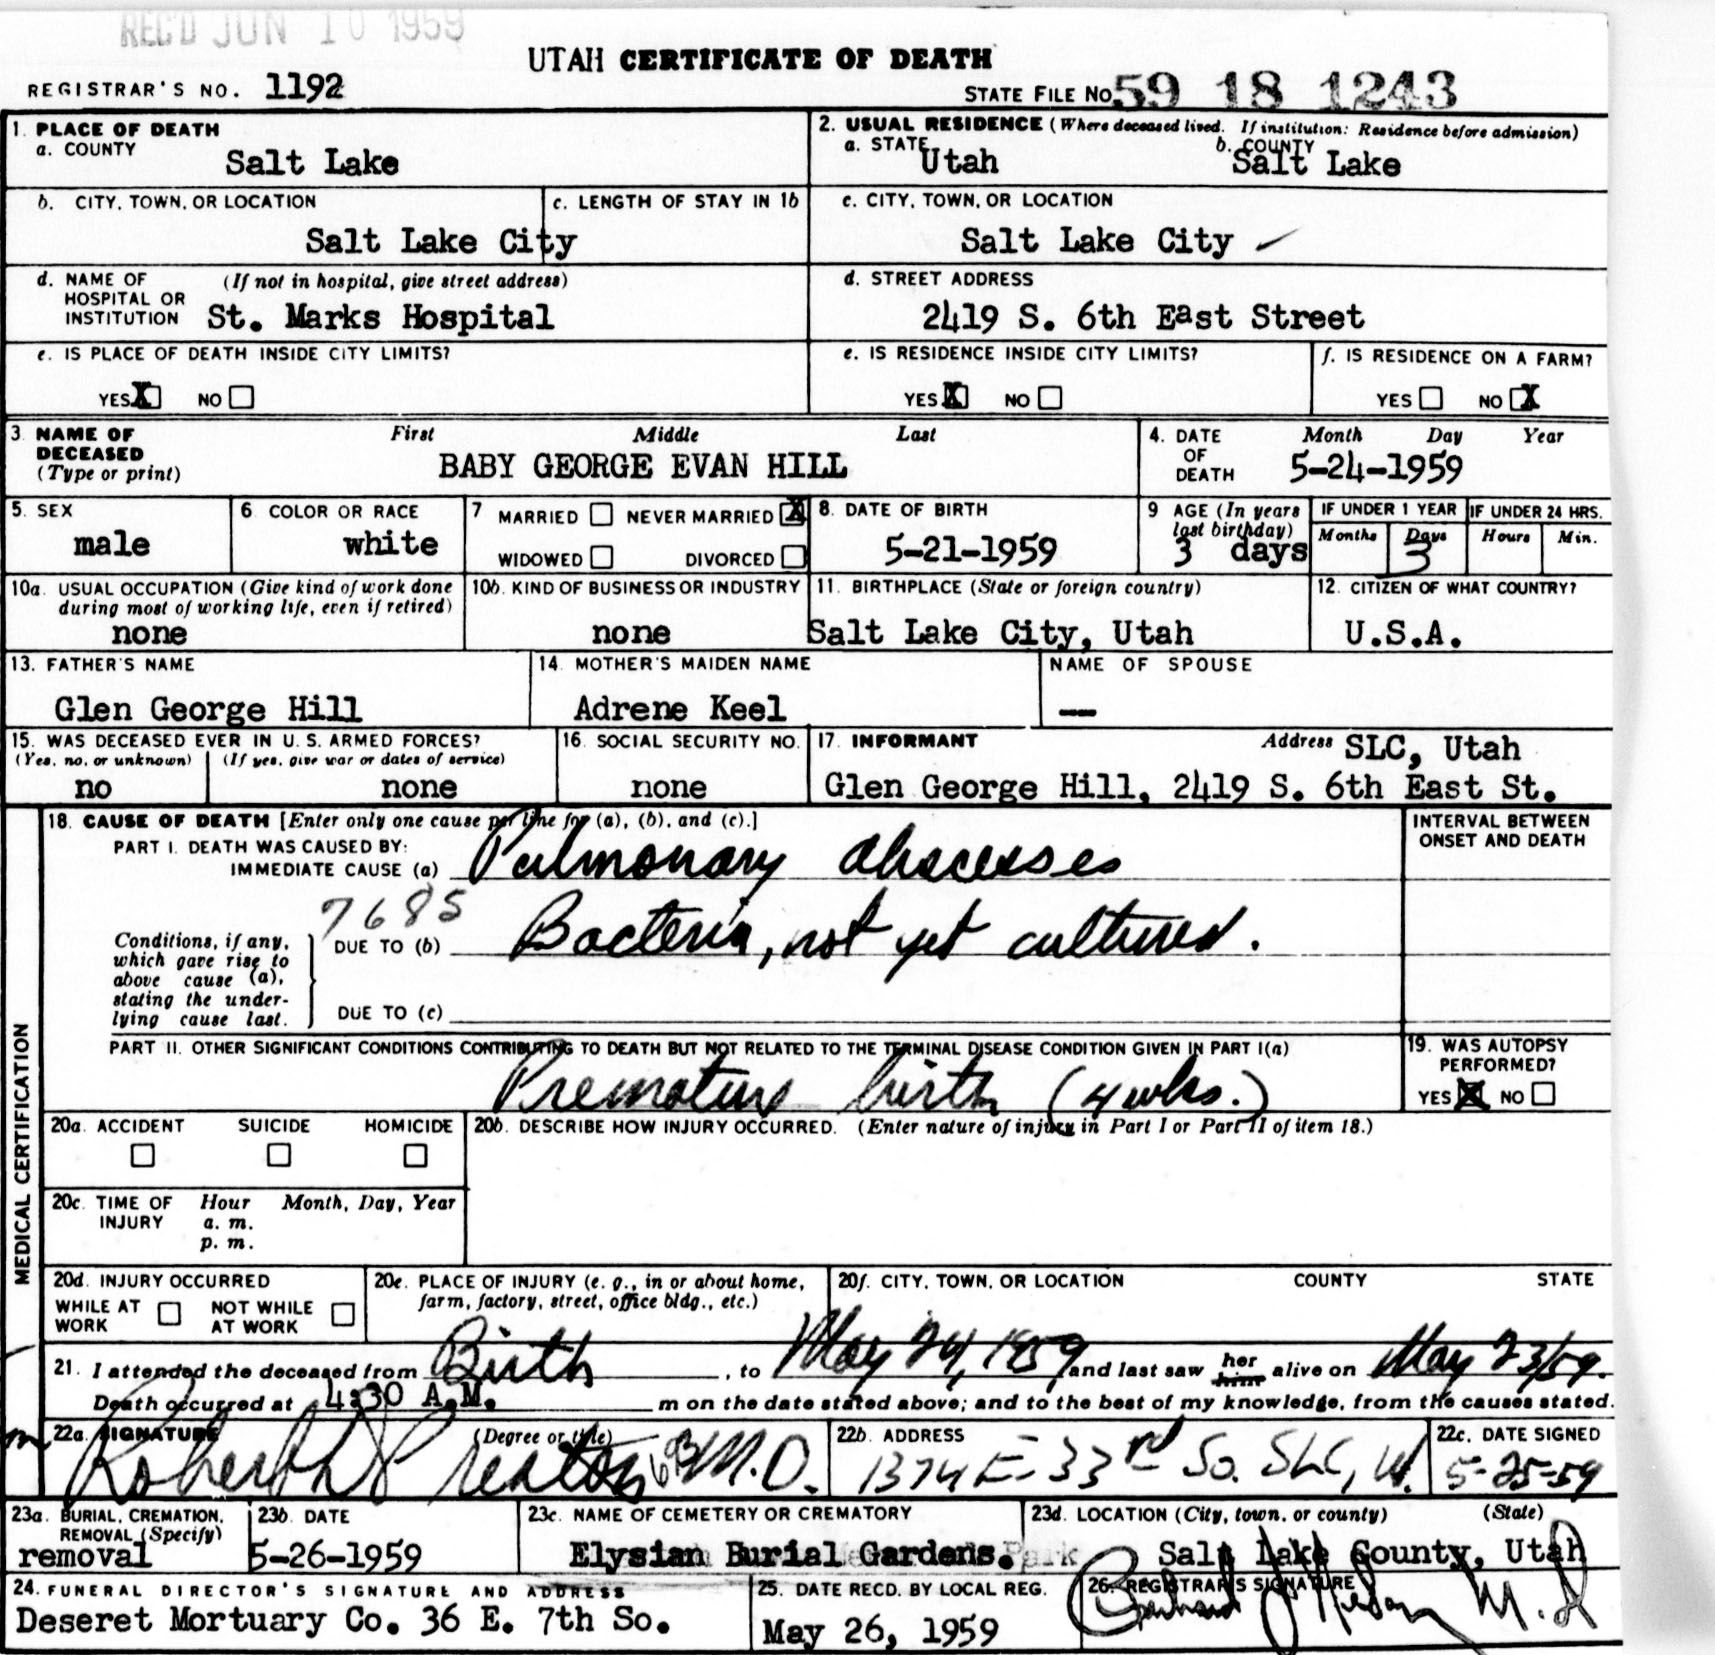 REC'D JUN 10 1959
UTAH CERTIFICATE OF DEATH
REGISTRAR'S NO. 1192
STATE FILE NO. 59 18 1243
1. PLACE OF DEATH
a. COUNTY
Salt Lake
2. USUAL RESIDENCE (Where deceased lived. If institution: Residence before admission)
a. STATE Utah
b. COUNTY Salt Lake
b. CITY, TOWN, OR LOCATION
Salt Lake City
c. LENGTH OF STAY IN 1b
c. CITY, TOWN, OR LOCATION
Salt Lake City
d. NAME OF (If not in hospital, give street address)
HOSPITAL OR
INSTITUTION St. Marks Hospital
d. STREET ADDRESS
2419 S. 6th East Street
e. IS PLACE OF DEATH INSIDE CITY LIMITS?
YES X NO
e. IS RESIDENCE INSIDE CITY LIMITS?
YES X NO
f. IS RESIDENCE ON A FARM?
YES NO X
3. NAME OF DECEASED (Type or print)
First Middle Last
BABY GEORGE EVAN HILL
4. DATE OF DEATH
Month Day Year
5-24-1959
5. SEX
male
6. COLOR OR RACE
white
7 MARRIED NEVER MARRIED X
WIDOWED DIVORCED
8. DATE OF BIRTH
5-21-1959
9 AGE (In years last birthday)
3 days
IF UNDER 1 YEAR
Months Days
3
IF UNDER 24 HRS.
Hours Min.
10a. USUAL OCCUPATION (Give kind of work done
during most of working life, even if retired)
none
10b. KIND OF BUSINESS OR INDUSTRY
none
11. BIRTHPLACE (State or foreign country)
Salt Lake City, Utah
12. CITIZEN OF WHAT COUNTRY?
U.S.A.
13. FATHER'S NAME
Glen George Hill
14. MOTHER'S MAIDEN NAME
Adrene Keel
NAME OF SPOUSE
—
15. WAS DECEASED EVER IN U.S. ARMED FORCES?
(Yes, no, or unknown) (If yes, give war or dates of service)
no none
16. SOCIAL SECURITY NO.
none
17. INFORMANT Address SLC, Utah
Glen George Hill, 2419 S. 6th East St.
MEDICAL CERTIFICATION
18. CAUSE OF DEATH [Enter only one cause per line for (a), (b), and (c).]
PART I. DEATH WAS CAUSED BY:
IMMEDIATE CAUSE (a) Pulmonary abscesses
INTERVAL BETWEEN
ONSET AND DEATH
7685
Conditions, if any,
which gave rise to
above cause (a),
stating the under-
lying cause last.
DUE TO (b) Bacteria, not yet cultured.
DUE TO (c)
PART II. OTHER SIGNIFICANT CONDITIONS CONTRIBUTING TO DEATH BUT NOT RELATED TO THE TERMINAL DISEASE CONDITION GIVEN IN PART I(a)
Premature birth (4 wks.)
19. WAS AUTOPSY
PERFORMED?
YES X NO
20a. ACCIDENT SUICIDE HOMICIDE
20b. DESCRIBE HOW INJURY OCCURRED. (Enter nature of injury in Part I or Part II of item 18.)
20c. TIME OF INJURY
Hour Month, Day, Year
a. m.
p. m.
20d. INJURY OCCURRED
WHILE AT WORK NOT WHILE AT WORK
20e. PLACE OF INJURY (e. g., in or about home,
farm, factory, street, office bldg., etc.)
20f. CITY, TOWN, OR LOCATION COUNTY STATE
21. I attended the deceased from Birth, to May 24, 1959 and last saw her him alive on May 23/59.
Death occurred at 4:30 A.M. m on the date stated above; and to the best of my knowledge, from the causes stated.
22a. SIGNATURE (Degree or title)
Robert Preston M.D.
22b. ADDRESS
1374 E-33rd So. SLC, U.
22c. DATE SIGNED
5-25-59
23a. BURIAL, CREMATION,
REMOVAL (Specify)
removal
23b. DATE
5-26-1959
23c. NAME OF CEMETERY OR CREMATORY
Elysian Burial Gardens. Park
23d. LOCATION (City, town, or county) (State)
Salt Lake County, Utah
24. FUNERAL DIRECTOR'S SIGNATURE AND ADDRESS
Deseret Mortuary Co. 36 E. 7th So.
25. DATE RECD. BY LOCAL REG.
May 26, 1959
26. REGISTRAR'S SIGNATURE
M.D